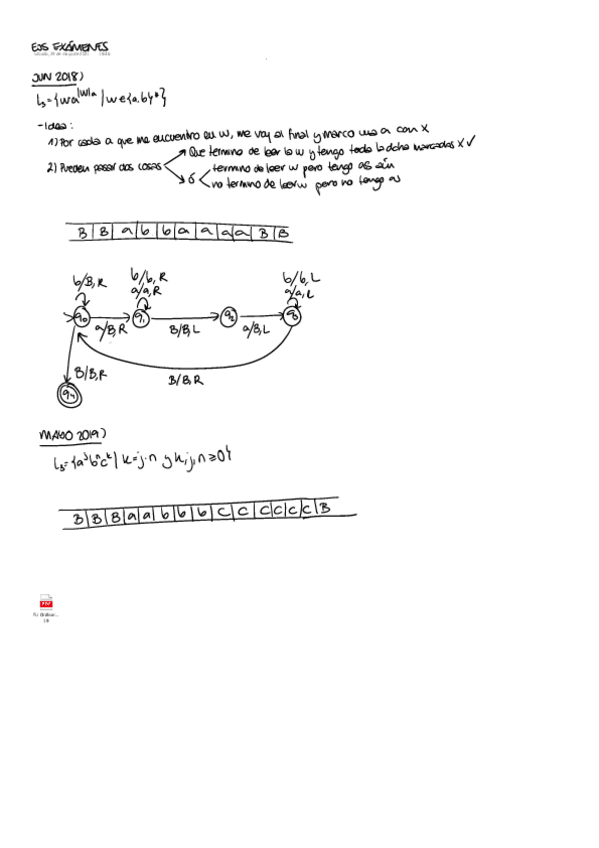 EJS EXÁMENES
JUN 2018)
L₃ = {wa^|w|a | w∈{a,b}*}
- Idea:
1) Por cada a que me encuentro en w, me voy al final y marco una a con X
2) Pueden pasar dos cosas
Que termino de leer la w y tengo toda la dcha marcadas X ✓
ó
termino de leer w pero tengo as aún
no termino de leer w pero no tengo as
B B a b b a a a a B B
b/B, R
b/b, R
a/a, R
b/b, L
a/a, L
q₀ a/B, R q₁ B/B, L q₂ a/B, L q₃
B/B, R
B/B, R
q₄
MAYO 2019)
L₃ = {aʲbⁿcᵏ | k=j·n y k,j,n ≥ 0}
B B B a a b b b c c c c c c B
PDF